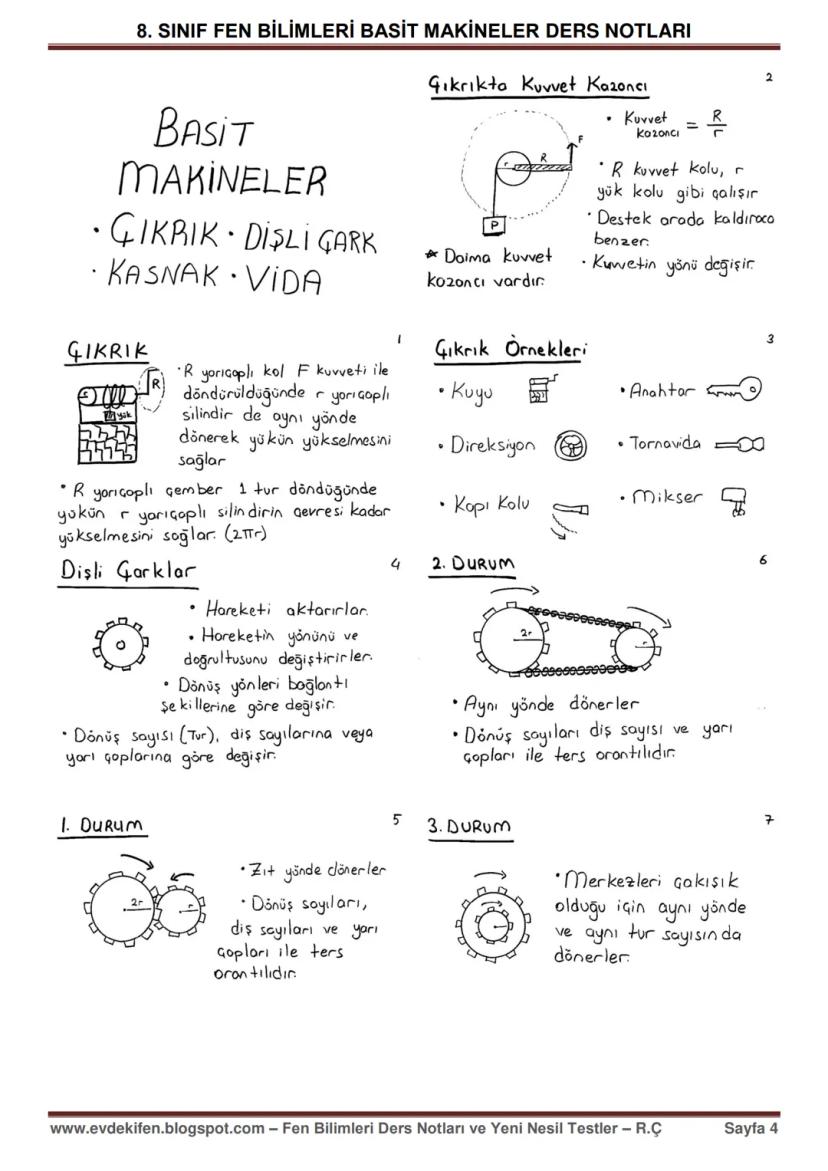 8. SINIF FEN BİLİMLERİ BASİT MAKİNELER DERS NOTLARI
BASİT
MAKİNELER
• ÇIKRIK • DİŞLİ ÇARK
• KASNAK • VİDA
Çıkrıkta Kuvvet Kazancı
2
• Kuvvet kazancı = R/r
F
R
r
P
• R kuvvet kolu, r
yük kolu gibi çalışır
• Destek arada kaldıraca
benzer.
• Kuvvetin yönü değişir.
* Daima kuvvet
kazancı vardır.
ÇIKRIK
1
R
yük
• R yarıçaplı kol F kuvveti ile
döndürüldüğünde r yarıçaplı
silindir de aynı yönde
dönerek yükün yükselmesini
sağlar
• R yarıçaplı çember 1 tur döndüğünde
yükün r yarıçaplı silindirin çevresi kadar
yükselmesini sağlar. (2πr)
Çıkrık Örnekleri
3
• Kuyu
• Anahtar
• Direksiyon
• Tornavida
• Kapı Kolu
• Mikser
Dişli Çarklar
4
• Hareketi aktarırlar.
• Hareketin yönünü ve
doğrultusunu değiştirirler.
• Dönüş yönleri bağlantı
şekillerine göre değişir.
• Dönüş sayısı (Tur), diş sayılarına veya
yarı çaplarına göre değişir.
2. DURUM
6
2r
r
• Aynı yönde dönerler
• Dönüş sayıları diş sayısı ve yarı
çapları ile ters orantılıdır.
1. DURUM
5
2r
r
• Zıt yönde dönerler
• Dönüş sayıları,
diş sayıları ve yarı
çapları ile ters
orantılıdır.
3. DURUM
7
• Merkezleri çakışık
olduğu için aynı yönde
ve aynı tur sayısında
dönerler.
www.evdekifen.blogspot.com – Fen Bilimleri Ders Notları ve Yeni Nesil Testler – R.Ç
Sayfa 4